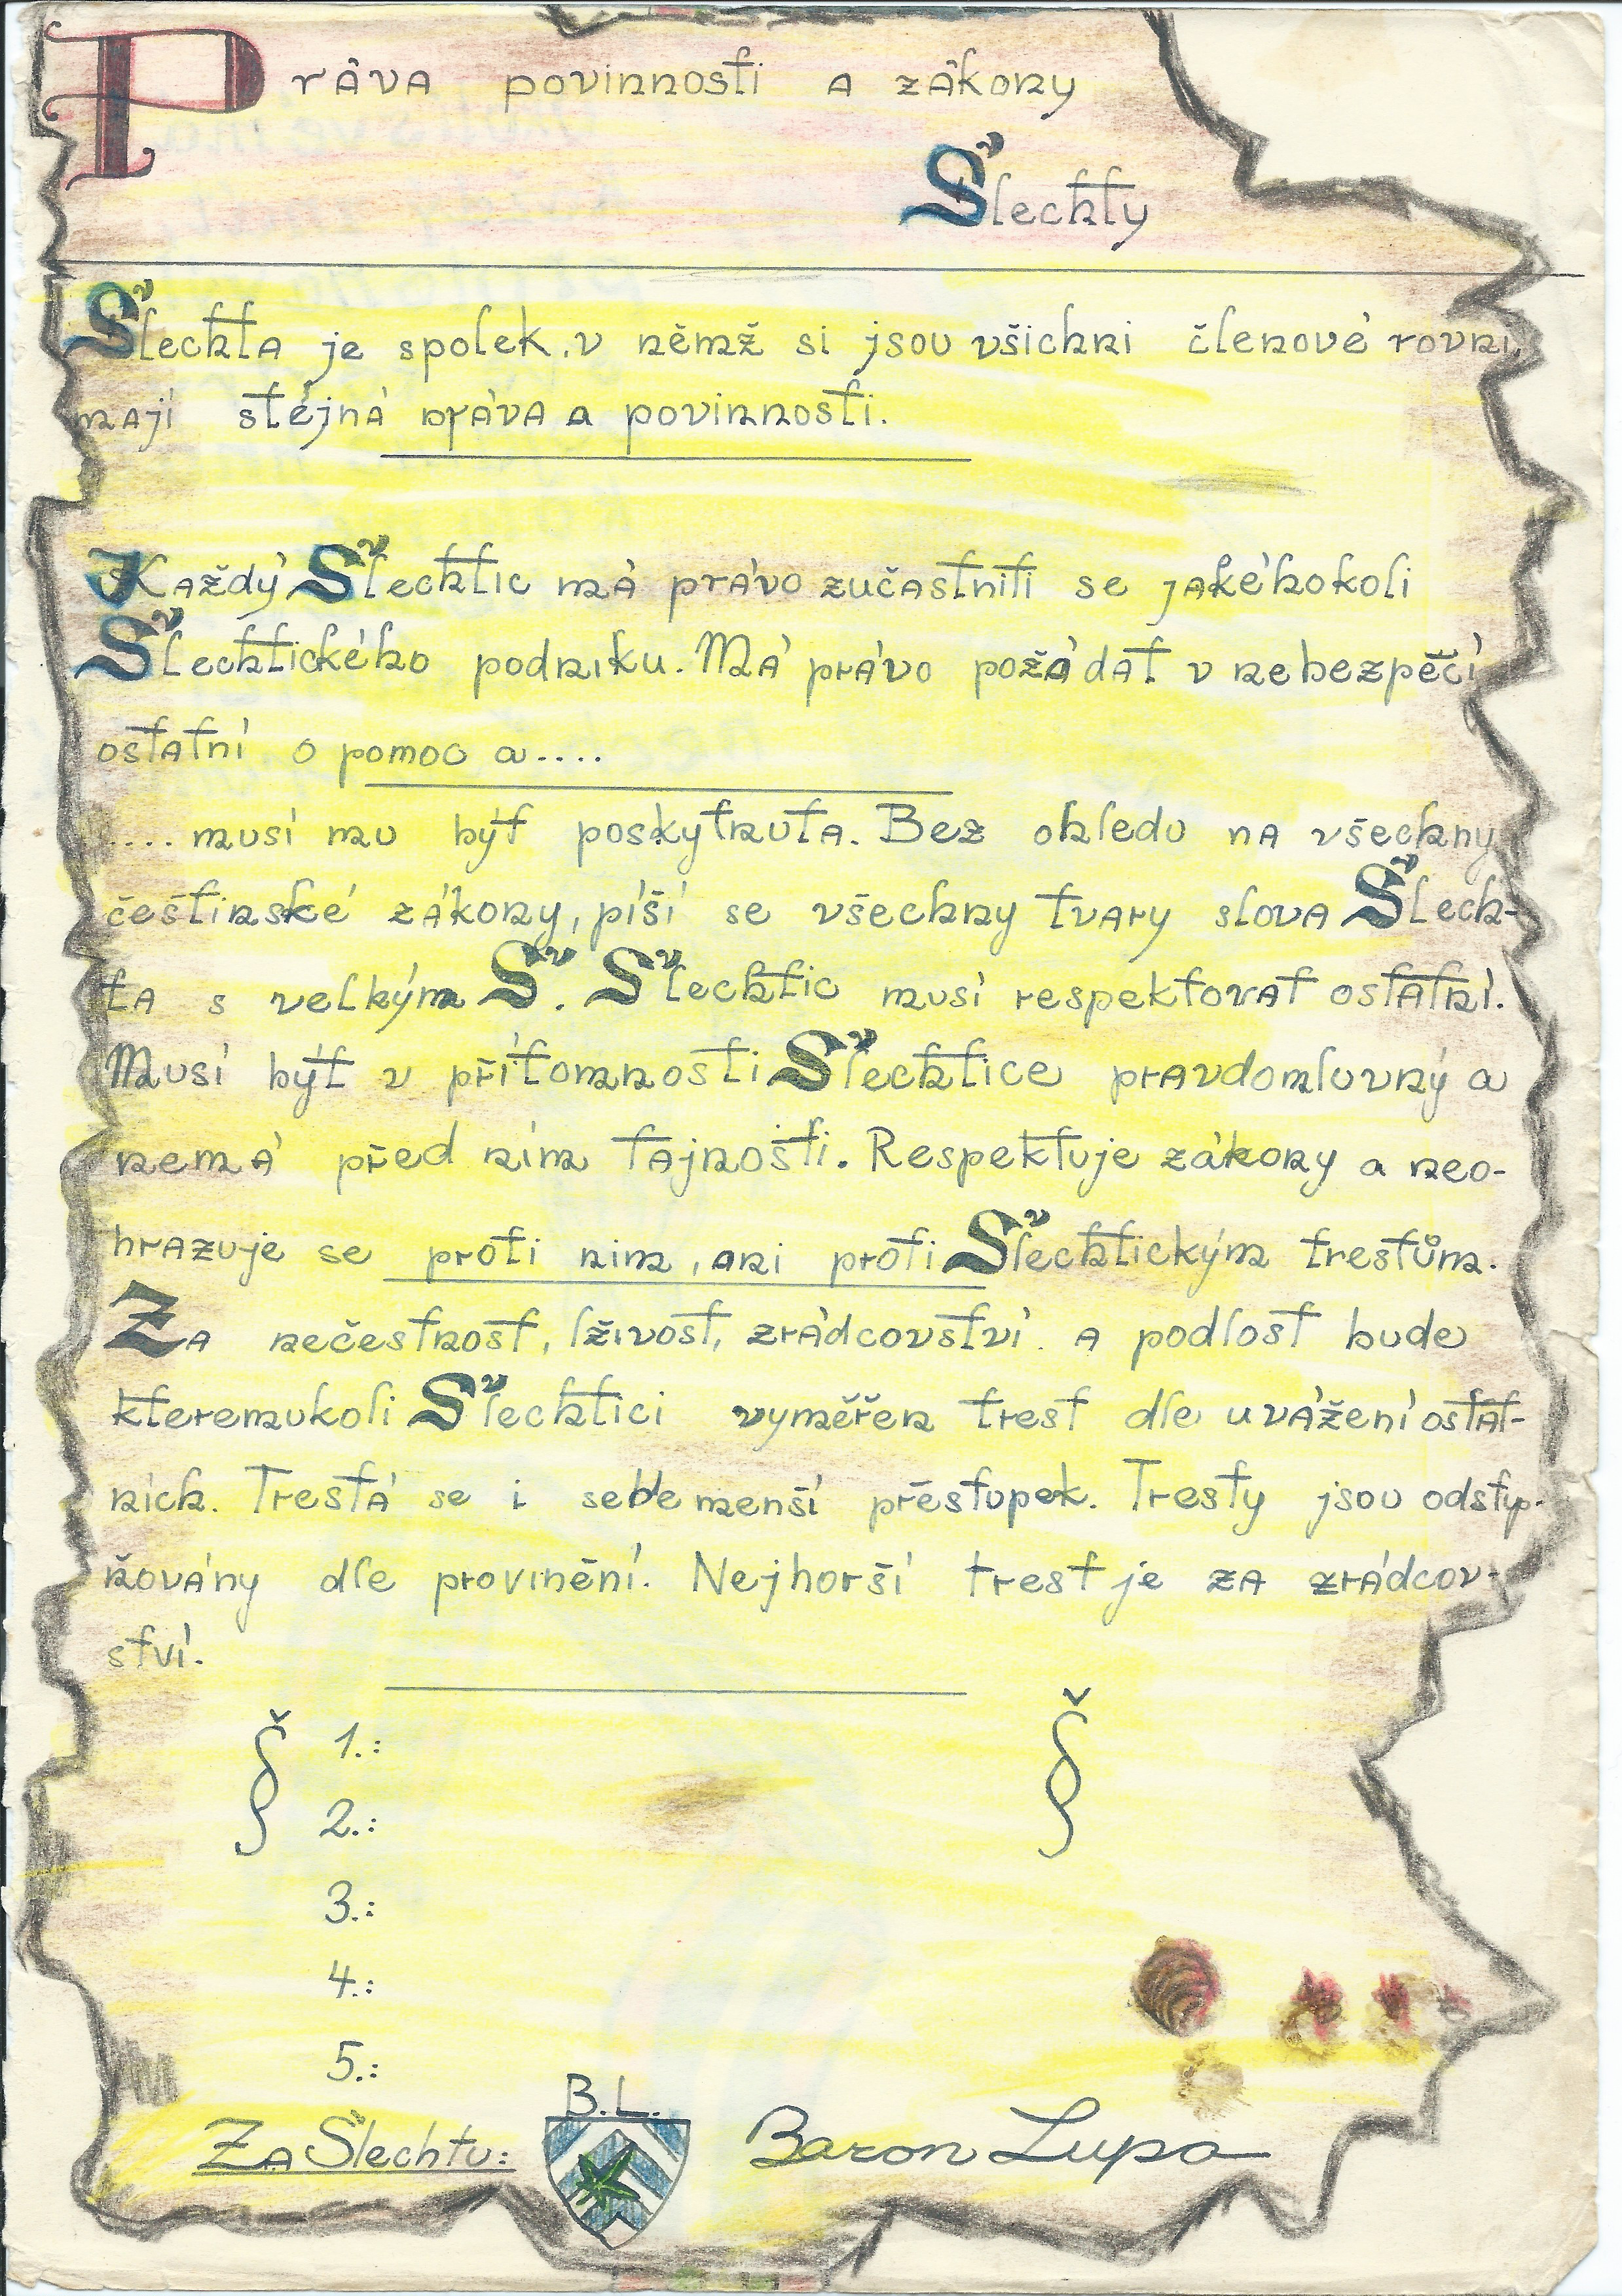 Práva povinnosti a zákony
Šlechty
Šlechta je spolek, v němž si jsou všichni členové rovni,
mají stéjná práva a povinnosti.
Každý Šlechtic má právo zučastniti se jakéhokoli
Šlechtického podniku. Má právo požádat v nebezpěčí
ostatní o pomoc a....
.... musí mu být poskytnuta. Bez ohledu na všechny
češtinské zákony, píší se všechny tvary slova Šlech-
ta s velkým Š. Šlechtic musí respektovat ostatní.
Musí být v přítomnosti Šlechtice pravdomluvný a
nemá před ním tajnosti. Respektuje zákony a neo-
hrazuje se proti nim, ani proti Šlechtickým trestům.
Za nečestnost, lživost, zrádcovství a podlost bude
kteremukoli Šlechtici vyměřen trest dle uvážení ostat-
ních. Trestá se i sebemenší přestupek. Tresty jsou odstup-
ňovány dle provinění. Nejhorší trest je za zrádcov-
ství.
§ 1.: §
2.:
3.:
4.:
5.:
B.L.
Za Šlechtu: Baron Lupo